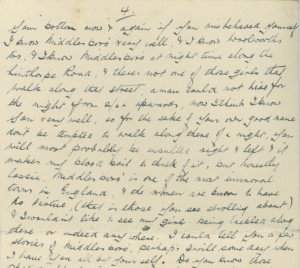 4.
Your bottom now & again if you misbehaved yourself
I know Middlesboro' very well, & I know Woolworths
too, & I know Middlesboro at night time along the
Linthorpe Road, & there's not one of those girls that
walk along that street, a man could not hire for
the night from 2/6 upwards, now I think I know
you very well, so for the sake of your own good name
don't be tempted to walk along there of a night, you
will most probably be insulted right & left & it
makes my blood boil to think of it, but honestly
lassie, Middlesboro' is one of the most immoral
towns in England, & the women are known to have
no virtue, (that is those you see strolling about)
& I wouldn't like to see my girl being tackled along
there or indeed anywhere. I could tell you a few
stories of Middlesboro, perhaps I will some day when
I have you all to yourself. Do you know those